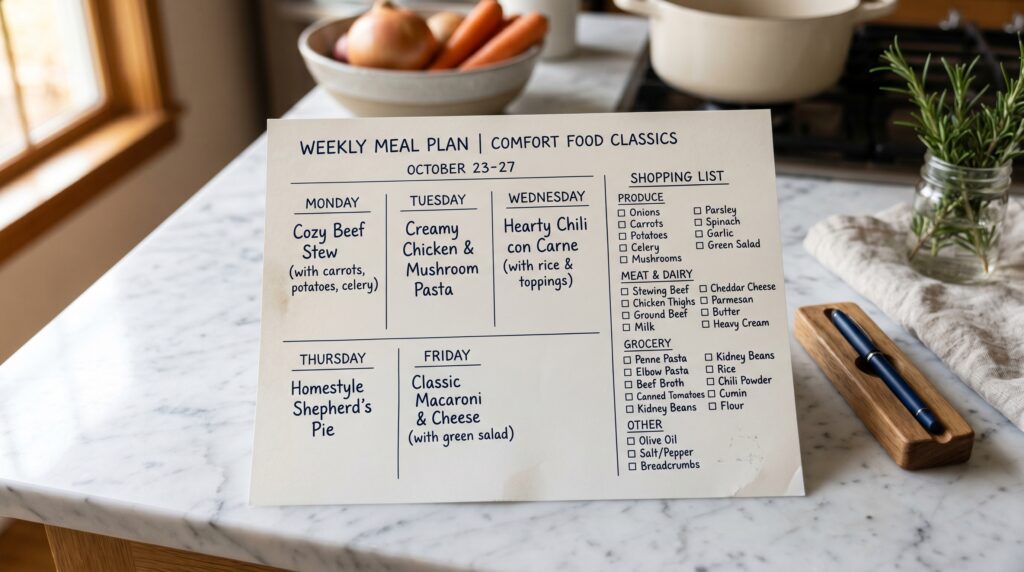 WEEKLY MEAL PLAN | COMFORT FOOD CLASSICS
OCTOBER 23-27
MONDAY
Cozy Beef
Stew
(with carrots,
potatoes, celery)
TUESDAY
Creamy
Chicken &
Mushroom
Pasta
WEDNESDAY
Hearty Chili
con Carne
(with rice &
toppings)
THURSDAY
Homestyle
Shepherd's
Pie
FRIDAY
Classic
Macaroni
& Cheese
(with green salad)
SHOPPING LIST
PRODUCE
☐ Onions
☐ Carrots
☐ Potatoes
☐ Celery
☐ Mushrooms
☐ Parsley
☐ Spinach
☐ Garlic
☐ Green Salad
MEAT & DAIRY
☐ Stewing Beef
☐ Chicken Thighs
☐ Ground Beef
☐ Milk
☐ Cheddar Cheese
☐ Parmesan
☐ Butter
☐ Heavy Cream
GROCERY
☐ Penne Pasta
☐ Elbow Pasta
☐ Beef Broth
☐ Canned Tomatoes
☐ Kidney Beans
☐ Kidney Beans
☐ Rice
☐ Chili Powder
☐ Cumin
☐ Flour
OTHER
☐ Olive Oil
☐ Salt/Pepper
☐ Breadcrumbs